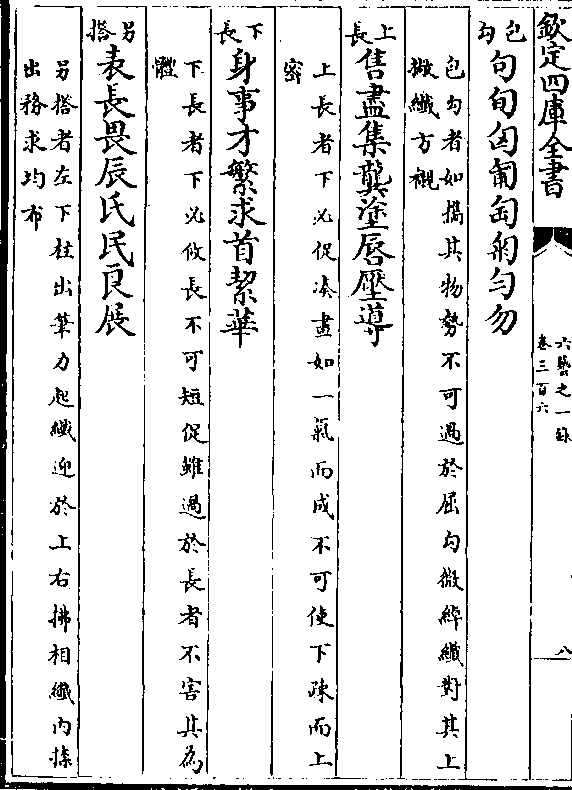 欽定四庫全書
六藝之一錄
卷三百六
八
包勾
句旬匈匍匋匊勻勿
包勾者如擕其物勢不可過於屈勾微綽纖對其上
微纖方襯
上長
售盡集龔塗唇壓導
上長者下必促湊畫如一氣而成不可使下疎而上
密
下長
身事才繁求首絜華
下長者下必攸長不可短促雖過於長者不害其為
體
另搭
表長畏辰氏民良展
另搭者左下柱出筆力起纖迎於上右拂相纖內搽
出務求均布